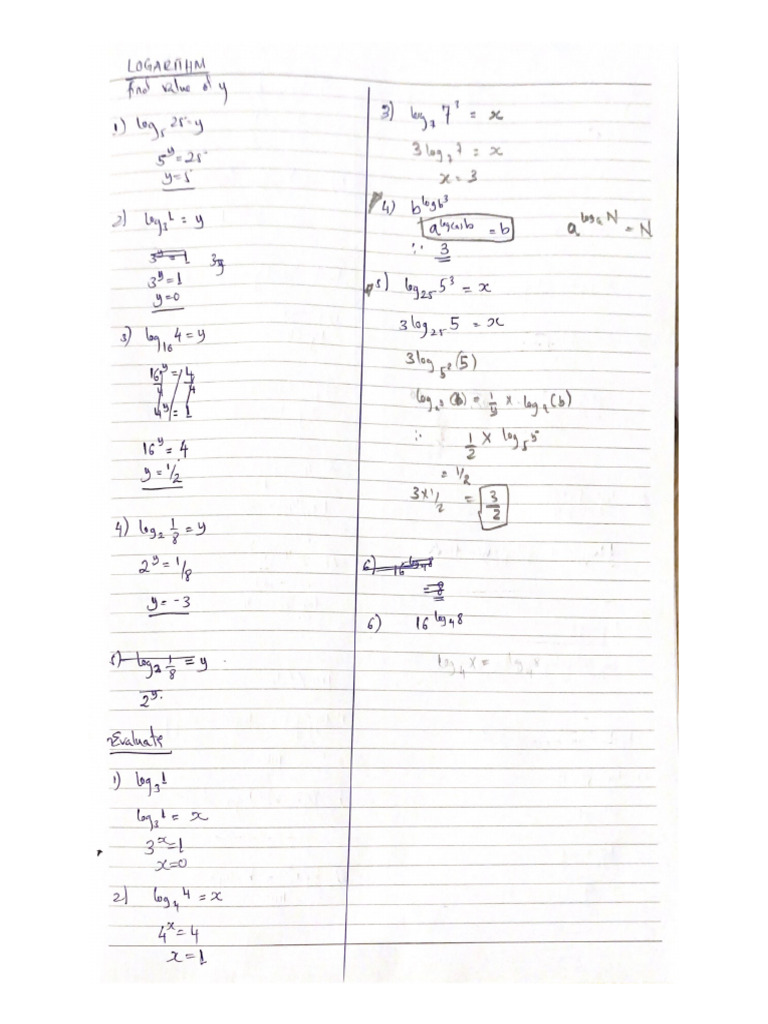 LOGARITHM
find value of y
1) log₅ 25 = y
5^y = 25
y = 5
2) log₃ 1 = y
3^y = 1 3y
3^y = 1
y = 0
3) log₁₆ 4 = y
16^y/4 = 4/4
4^y = 1
16^y = 4
y = 1/2
4) log₂ 1/8 = y
2^y = 1/8
y = -3
5) log₂ 1/8 = y
2^y.
Evaluate
1) log₃ 1
log₃ 1 = x
3^x = 1
x = 0
2) log₄ 4 = x
4^x = 4
x = 1
3) log₇ 7³ = x
3 log₇ 7 = x
x = 3
4) b^log b³
a^log(a)b = b a^logₐ N = N
∵ 3
5) log₂₅ 5³ = x
3 log₂₅ 5 = x
3 log₅² (5)
(b) = 1/y × logₐ (b)
∵ 1/2 × log₅ 5
= 1/2
3 × 1/2 = 3/2
6) 16^log₄8
= 8
6) 16^log₄8
log₄ x = log₄ 8